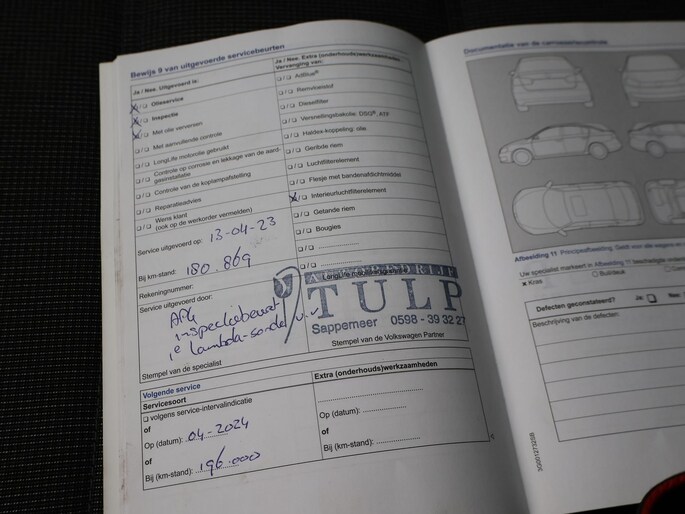 Bewijs 9 van uitgevoerde servicebeurten
Ja / Nee. Uitgevoerd is:
Olieservice
Inspectie
Met olie verversen
Met aanvullende controle
LongLife motorolie gebruikt
Controle op corrosie en lekkage van de aard-
gasinstallatie
Controle van de koplampafstelling
Reparatieadvies
Wens klant
(ook op de werkorder vermelden)
Service uitgevoerd op: 13-04-23
Bij km-stand: 180.869
Rekeningnummer:
Service uitgevoerd door:
APK
inspectiebeurt
1e lambda-sonde v.v
Stempel van de specialist
Ja / Nee. Extra (onderhouds)werkzaamheden
Vervanging van:
AdBlue®
Remvloeistof
Dieselfilter
Versnellingsbakolie: DSG®, ATF
Haldex-koppeling: olie
Geribde riem
Luchtfilterelement
Flesje met bandenafdichtmiddel
Interieurluchtfilterelement
Getande riem
Bougies
AUTOBEDRIJF
TULP
Sappemeer 0598 - 39 32 27
Stempel van de Volkswagen Partner
Volgende service
Servicesoort
volgens service-intervalindicatie
of
Op (datum): 04-2024
of
Bij (km-stand): 196.000
Extra (onderhouds)werkzaamheden
Op (datum):
of
Bij (km-stand):
Documentatie van de carrosseriecontrole
Afbeelding 11 Principeafbeelding: Geldt voor alle wagens en
Uw specialist markeert in Afbeelding 11 beschadigde
Kras
Defecten geconstateerd? Ja: Nee:
Beschrijving van de defecten: